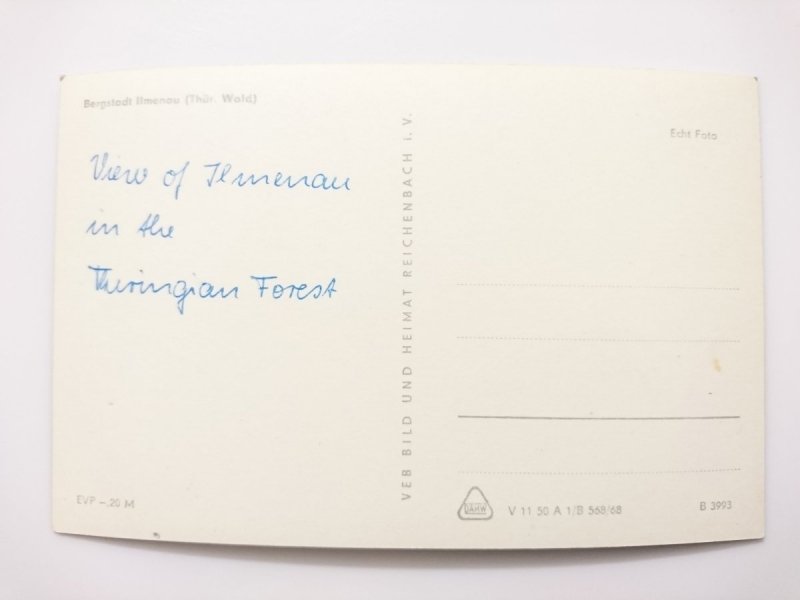 Bergstadt Ilmenau (Thür. Wald)
View of Ilmenau
in the
Thuringian Forest
EVP -.20 M
VEB BILD UND HEIMAT REICHENBACH i. V.
Echt Foto
DAMW
V 11 50 A 1/B 568/68
B 3993